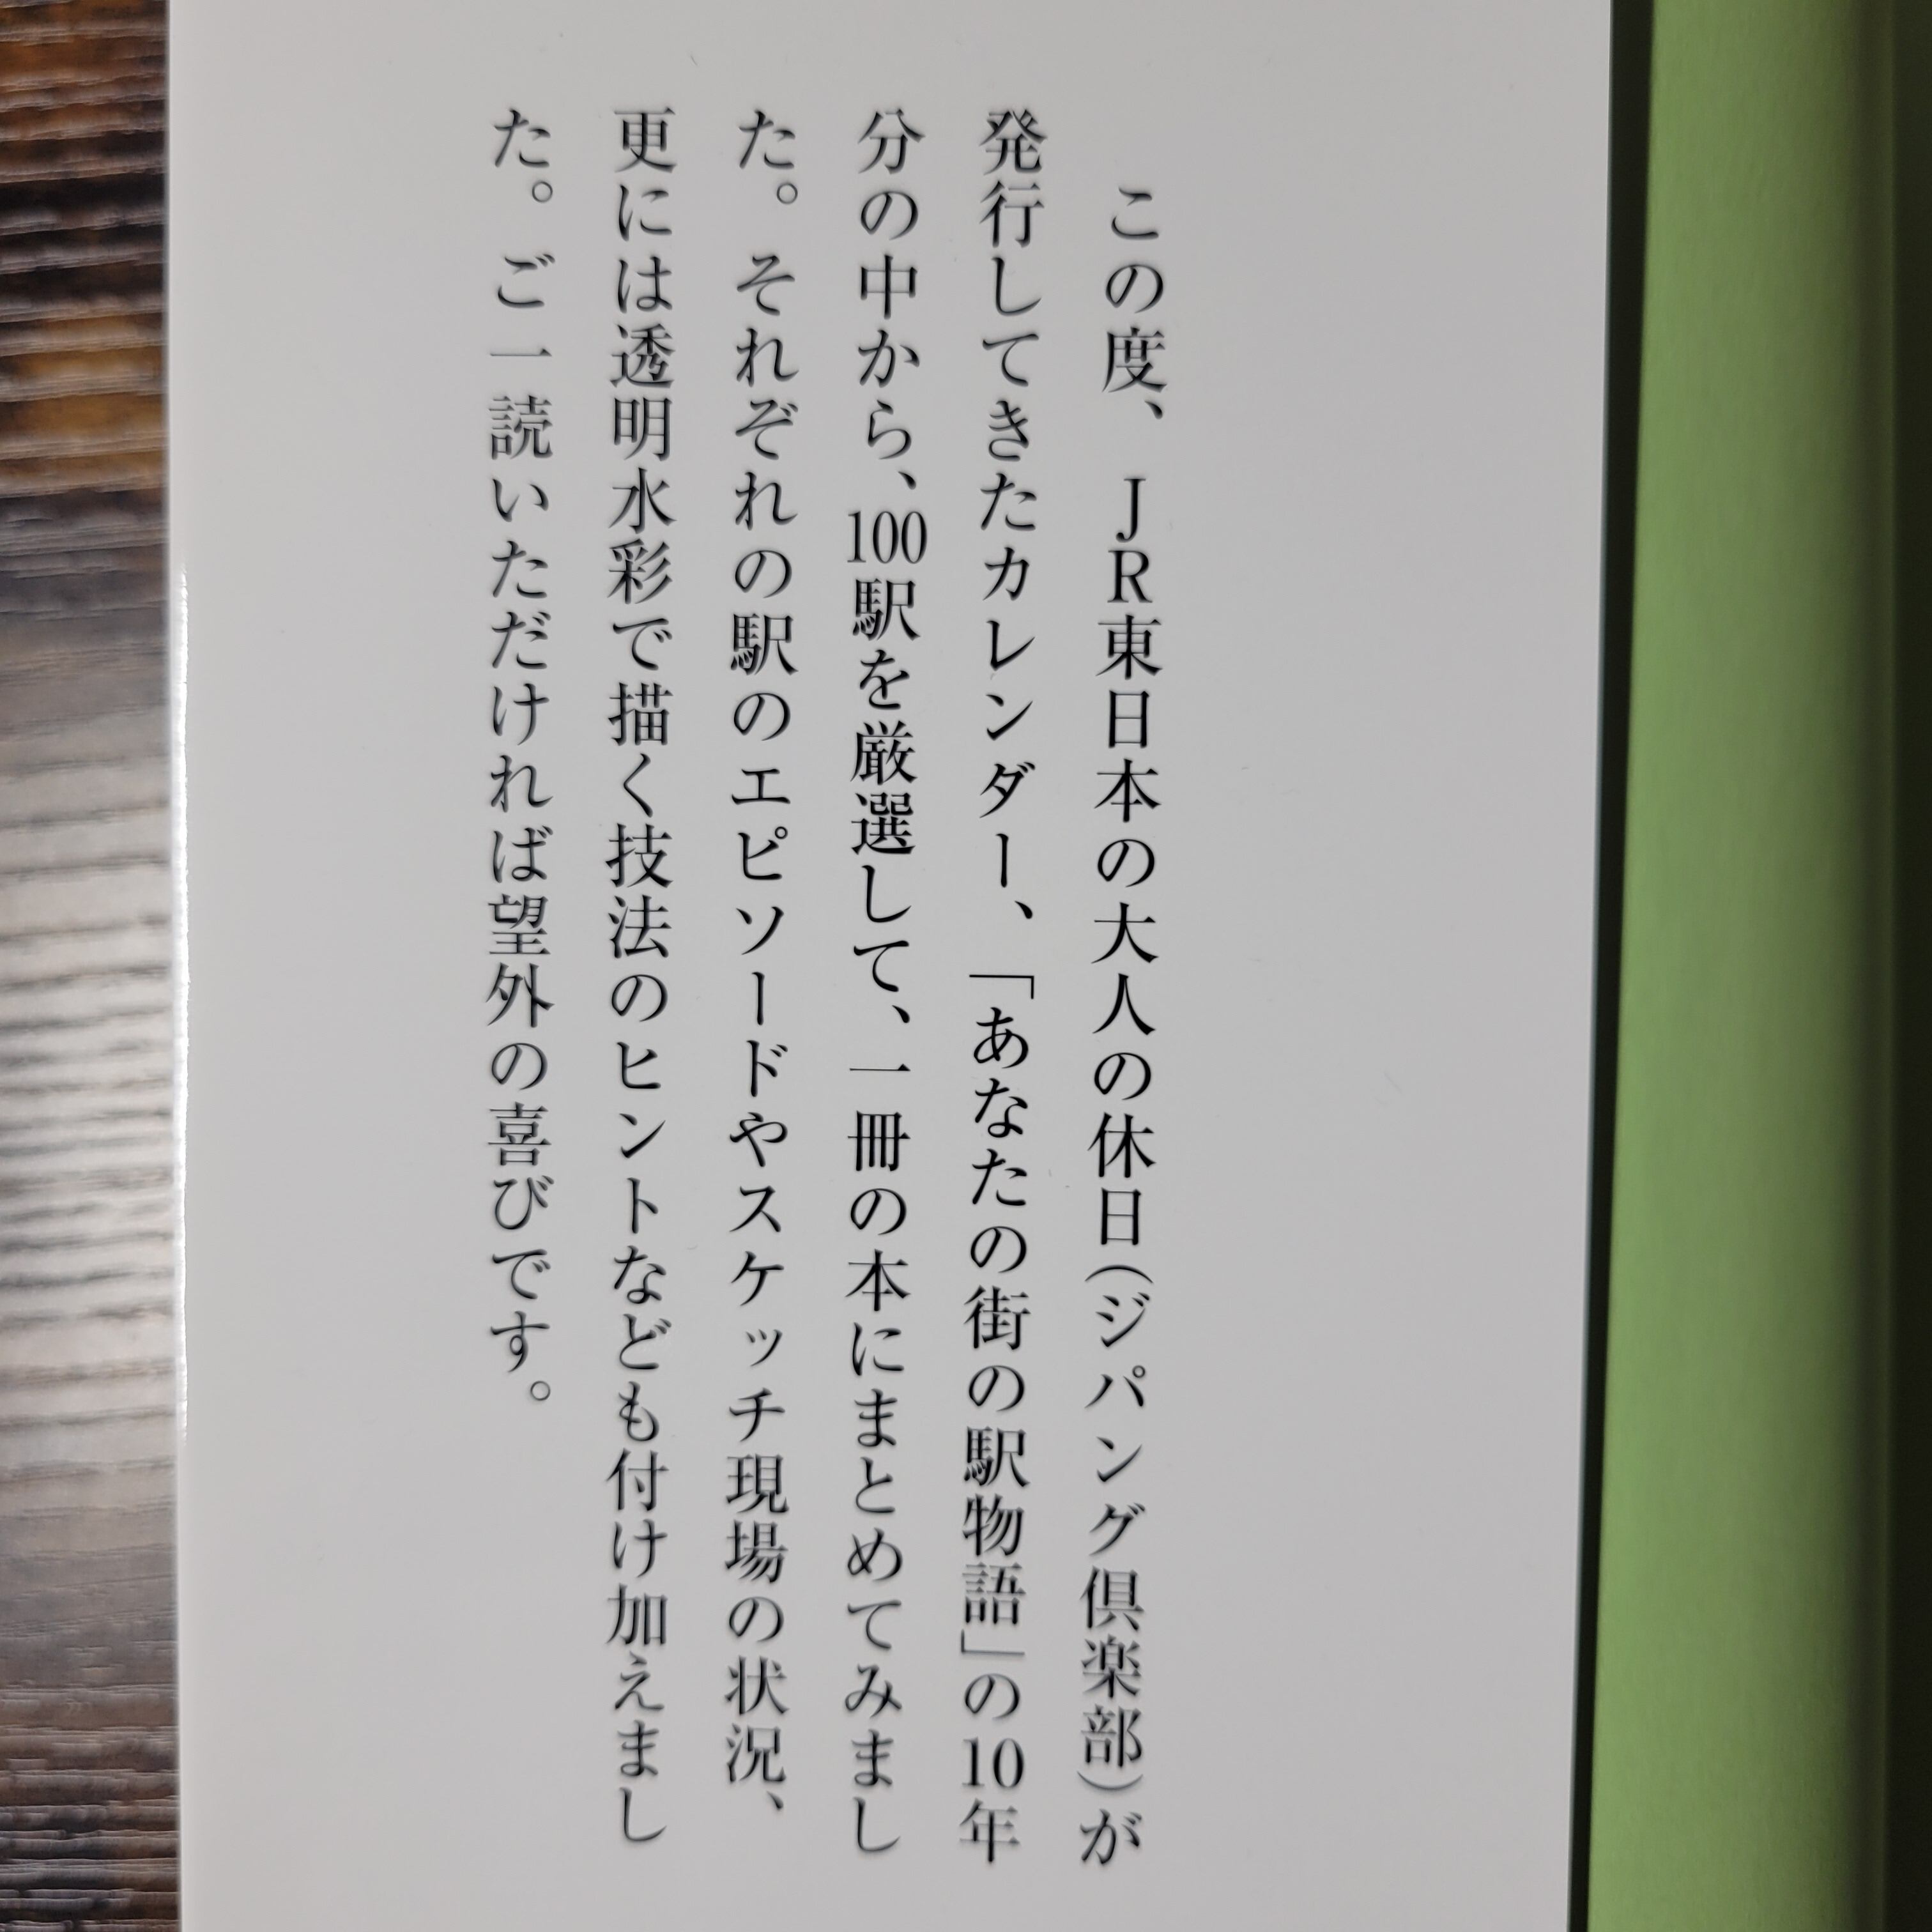 この度、JR東日本の大人の休日(ジパング倶楽部)が
発行してきたカレンダー、「あなたの街の駅物語」の10年
分の中から、100駅を厳選して、一冊の本にまとめてみまし
た。それぞれの駅のエピソードやスケッチ現場の状況、
更には透明水彩で描く技法のヒントなども付け加えまし
た。ご一読いただければ望外の喜びです。